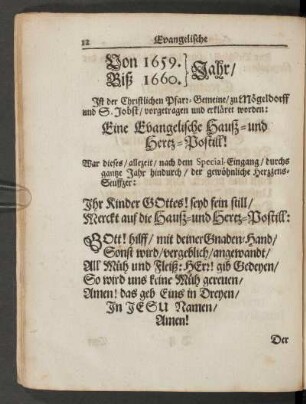 12 Evangelische
Von 1659. } Jahr/
Biß 1660.
Ist der Christlichen Pfarr-Gemeine/ zu Mögeldorff
und S. Jobst/ vorgetragen und erkläret worden:
Eine Evangelische Hauß- und
Hertz-Postill!
War dieses/ allezeit/ nach dem Special-Eingang/ durchs
gantze Jahr hindurch/ der gewöhnliche Hertzens-
Seuffzer:
Ihr Kinder GOttes! seyd fein still/
Merckt auf die Hauß- und Hertz-Postill:
GOtt! hilff/ mit deiner Gnaden-Hand/
Sonst wird/ vergeblich/ angewandt/
All Müh und Fleiß: HErr! gib Gedeyen/
So wird uns keine Müh gereuen/
Amen! das geb Eins in Dreyen/
In JESU Namen/
Amen!
Der